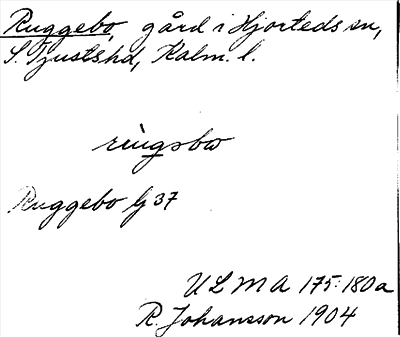 Ruggebo, gård i Hjorteds sn,
S. Tjusts hd, Kalm. l.
Ruggebo Gj 37
ULMA 175:180a
R. Johansson 1904